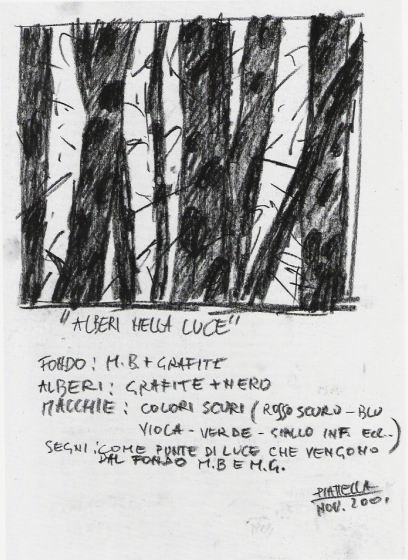 "ALBERI NELLA LUCE"
FONDO: M.B + GRAFITE
ALBERI: GRAFITE + NERO
MACCHIE: COLORI SCURI (ROSSO SCURO - BLU
VIOLA - VERDE - GIALLO INF. ECC..)
SEGNI: COME PUNTE DI LUCE CHE VENGONO
DAL FONDO M.B E M.G.
PIATTELLA
NOV. 2001